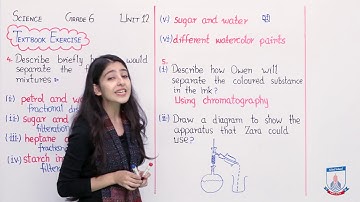 Science Grade 6 Unit 12
Textbook Exercise
4. Describe briefly how would
separate the f
mixtures :-
(i) petrol and w
fractional dis
(ii) sugar and
filteration
(iii) heptane a
fractio
(iv) starch in
filter
(v) sugar and water
(vi) different watercolor paints
5.
(i) Describe how Owen will
separate the coloured substance
in the ink?
Using chromatography
(ii) Draw a diagram to show the
apparatus that Zara could
use?